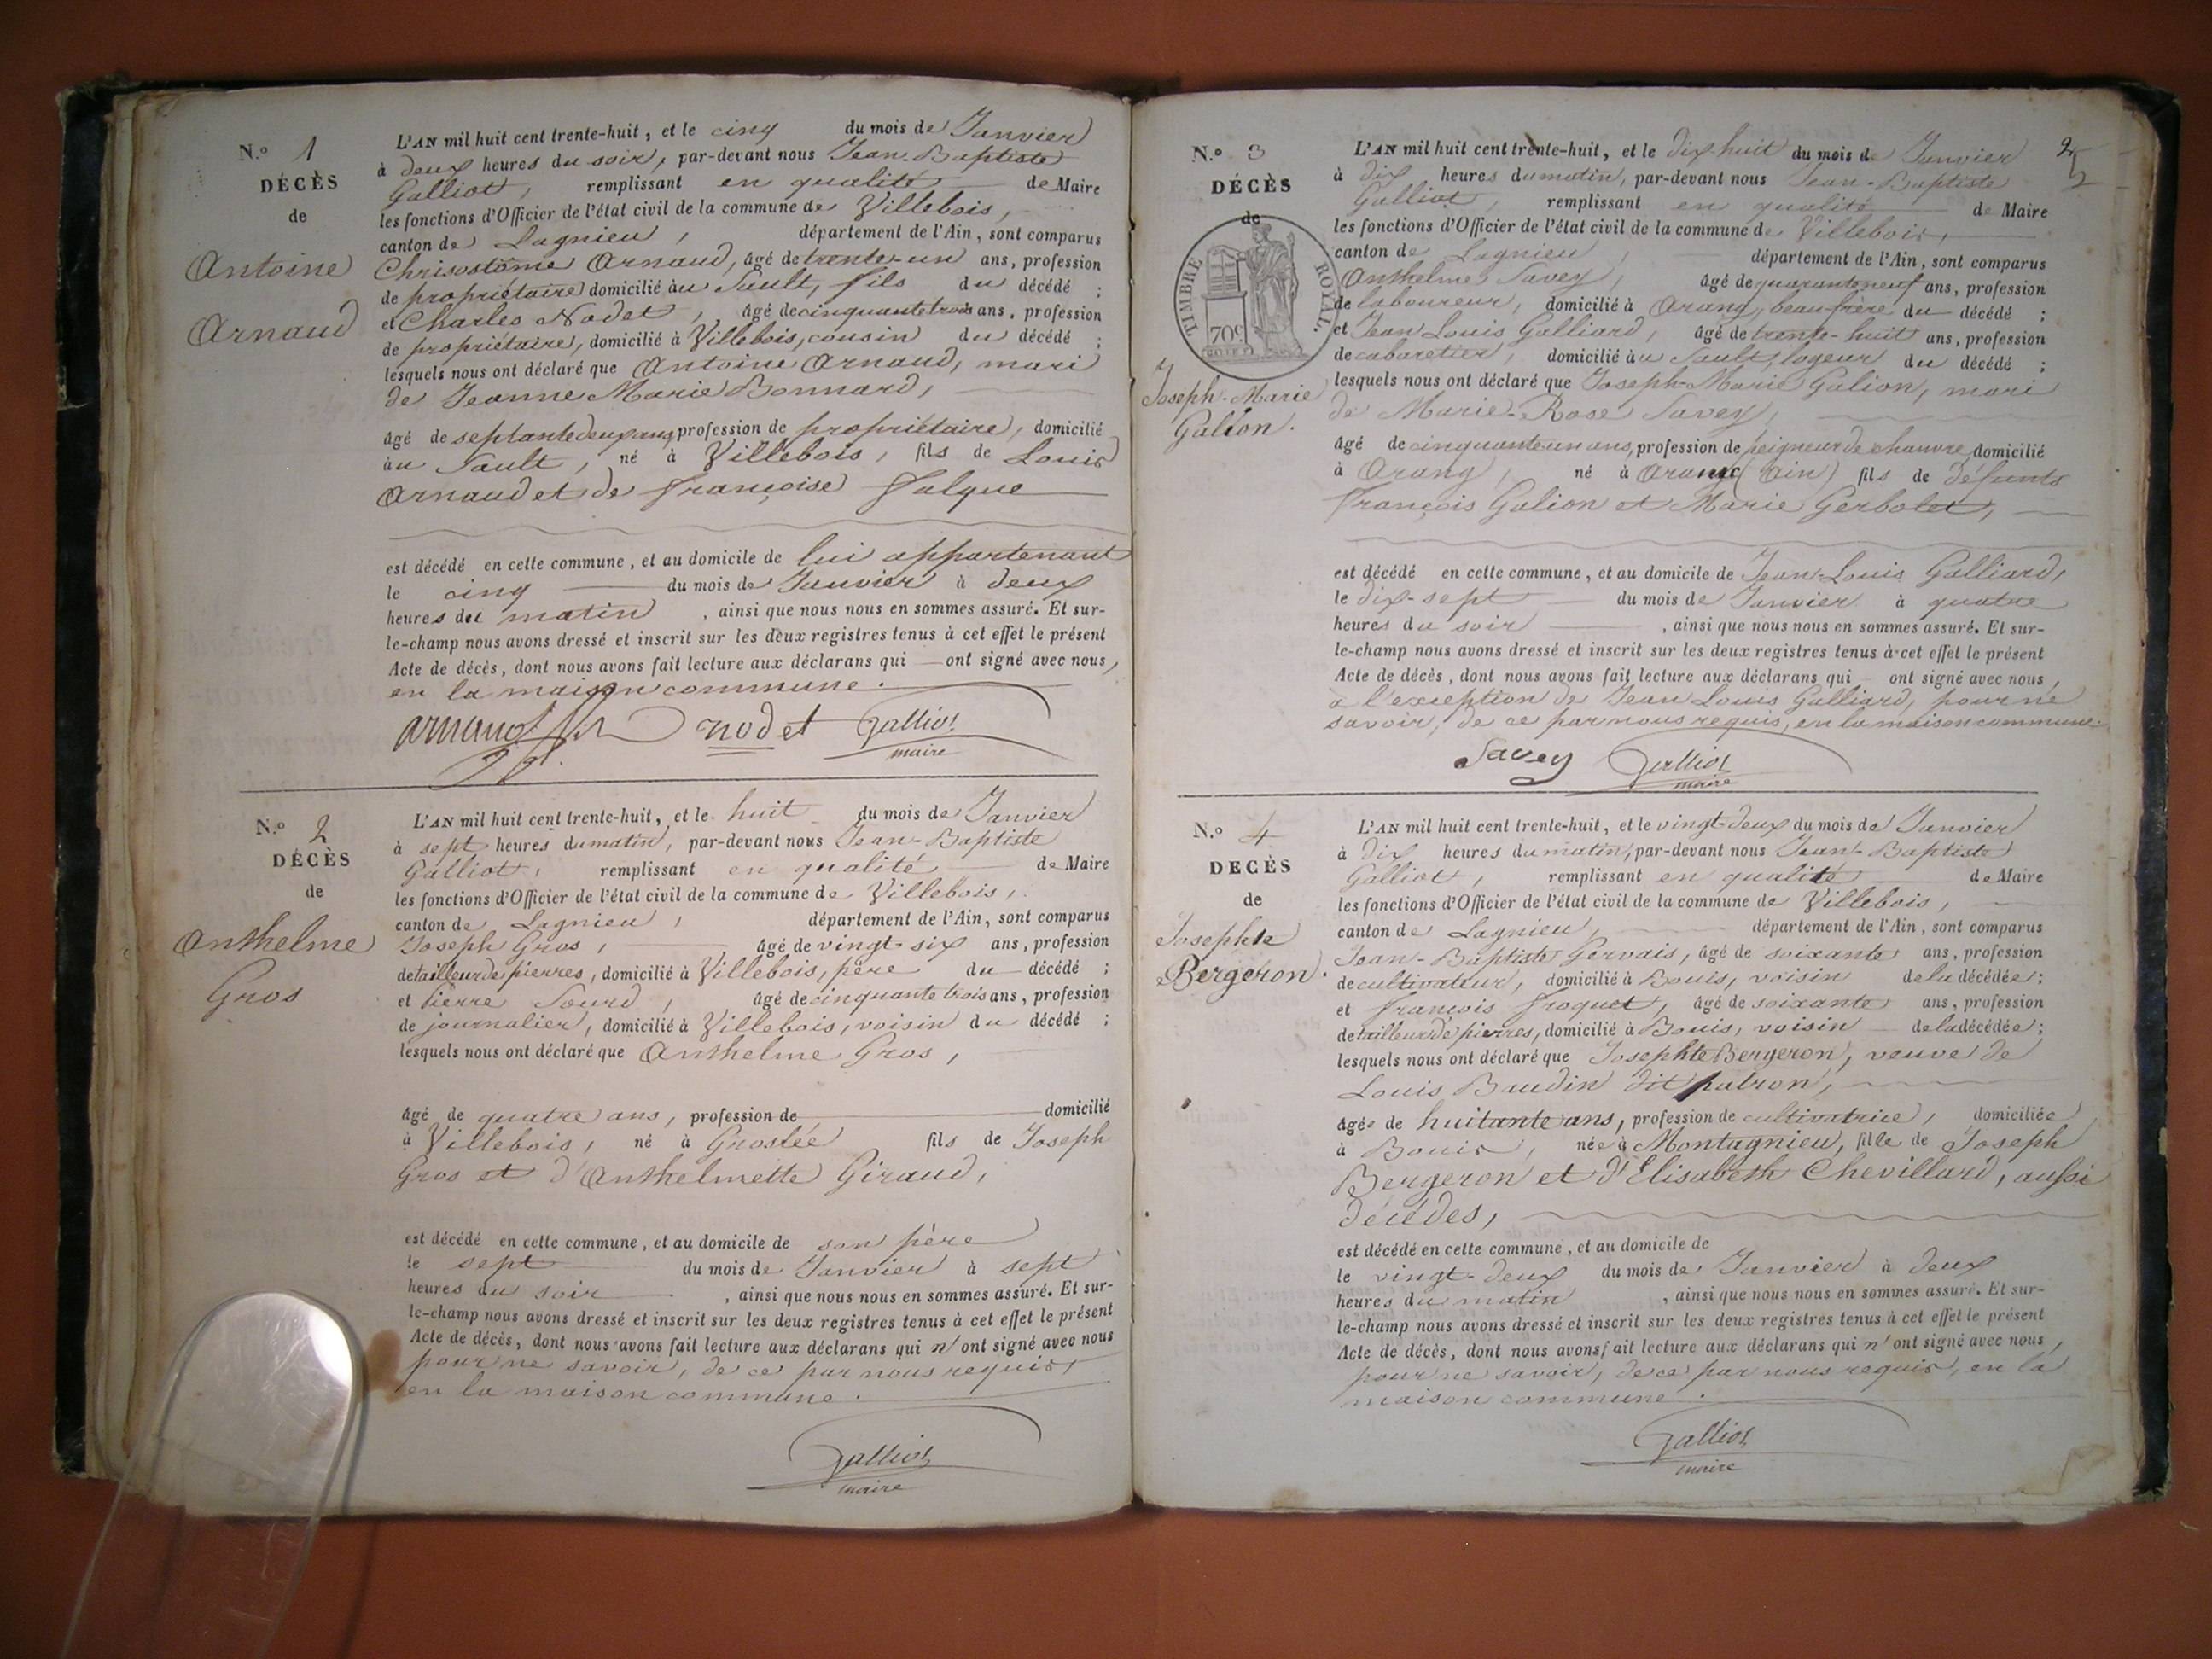 N.o 1
DÉCÈS
de
Antoine
Arnaud
L'AN mil huit cent trente-huit, et le cinq du mois de Janvier
à deux heures du soir, par-devant nous Jean-Baptiste
Galliot, remplissant en qualité de Maire
les fonctions d'Officier de l'état civil de la commune de Villebois,
canton de Lagnieu, département de l'Ain, sont comparus
Chrisostôme Arnaud, âgé de trente-un ans, profession
de propriétaire domicilié au Sault, fils du décédé ;
et Charles Nodet, âgé de cinquante trois ans, profession
de propriétaire, domicilié à Villebois, cousin du décédé ;
lesquels nous ont déclaré que Antoine Arnaud, mari
de Jeanne Marie Bonnard,
âgé de septante deux ans, profession de propriétaire, domicilié
au Sault, né à Villebois, fils de Louis
Arnaud et de Françoise Falque
est décédé en cette commune, et au domicile de lui appartenant
le cinq du mois de Janvier à deux
heures du matin, ainsi que nous nous en sommes assuré. Et sur-
le-champ nous avons dressé et inscrit sur les deux registres tenus à cet effet le présent
Acte de décès, dont nous avons fait lecture aux déclarans qui ont signé avec nous,
en la maison commune.
arnaud fils nodet Galliot
maire
N.o 2
DÉCÈS
de
Anthelme
Gros
L'AN mil huit cent trente-huit, et le huit du mois de Janvier
à sept heures du matin, par-devant nous Jean-Baptiste
Galliot, remplissant en qualité de Maire
les fonctions d'Officier de l'état civil de la commune de Villebois,
canton de Lagnieu, département de l'Ain, sont comparus
Joseph Gros, âgé de vingt-six ans, profession
de tailleur de pierres, domicilié à Villebois, père du décédé ;
et Pierre Sourd, âgé de cinquante trois ans, profession
de journalier, domicilié à Villebois, voisin du décédé ;
lesquels nous ont déclaré que Anthelme Gros,
âgé de quatre ans, profession de domicilié
à Villebois, né à Groslée fils de Joseph
Gros et d'Anthelmette Giraud,
est décédé en cette commune, et au domicile de son père
le sept du mois de Janvier à sept
heures du soir, ainsi que nous nous en sommes assuré. Et sur-
le-champ nous avons dressé et inscrit sur les deux registres tenus à cet effet le présent
Acte de décès, dont nous avons fait lecture aux déclarans qui n'ont signé avec nous
pour ne savoir, de ce par nous requis,
en la maison commune.
Galliot
maire
2
N.o 3
DÉCÈS
de
TIMBRE ROYAL.
70c
Joseph-Marie
Galion.
L'AN mil huit cent trente-huit, et le dix huit du mois de Janvier
à dix heures du matin, par-devant nous Jean-Baptiste
Galliot, remplissant en qualité de Maire
les fonctions d'Officier de l'état civil de la commune de Villebois,
canton de Lagnieu, département de l'Ain, sont comparus
Anthelme Savey, âgé de quarante neuf ans, profession
de laboureur, domicilié à Arang, beau frère du décédé ;
et Jean Louis Galliard, âgé de trente-huit ans, profession
de cabaretier, domicilié au Sault, logeur du décédé ;
lesquels nous ont déclaré que Joseph-Marie Galion, mari
de Marie-Rose Savey,
âgé de cinquante un ans, profession de peigneur de chanvre domicilié
à Arang, né à Aranc (Ain) fils de défunts
François Galion et Marie Gerbolet,
est décédé en cette commune, et au domicile de Jean-Louis Galliard,
le dix-sept du mois de Janvier à quatre
heures du soir, ainsi que nous nous en sommes assuré. Et sur-
le-champ nous avons dressé et inscrit sur les deux registres tenus à cet effet le présent
Acte de décès, dont nous avons fait lecture aux déclarans qui ont signé avec nous,
à l'exception de Jean Louis Galliard, pour ne
savoir, de ce par nous requis, en la maison commune.
Savey Galliot
maire
N.o 4
DÉCÈS
de
Josephte
Bergeron.
L'AN mil huit cent trente-huit, et le vingt-deux du mois de Janvier
à dix heures du matin, par-devant nous Jean-Baptiste
Galliot, remplissant en qualité de Maire
les fonctions d'Officier de l'état civil de la commune de Villebois,
canton de Lagnieu, département de l'Ain, sont comparus
Jean-Baptiste Gervais, âgé de soixante ans, profession
de cultivateur, domicilié à Bouis, voisin de la décédée ;
et François Froquet, âgé de soixante ans, profession
de tailleur de pierres, domicilié à Bouis, voisin de la décédée ;
lesquels nous ont déclaré que Josephte Bergeron, veuve de
Louis Baudin dit patron,
âgée de huitante ans, profession de cultivatrice, domiciliée
à Bouis, née à Montagnieu, fille de Joseph
Bergeron et d'Elisabeth Chevillard, aussi
décédés,
est décédé en cette commune, et au domicile de
le vingt-deux du mois de Janvier à deux
heures du matin, ainsi que nous nous en sommes assuré. Et sur-
le-champ nous avons dressé et inscrit sur les deux registres tenus à cet effet le présent
Acte de décès, dont nous avons fait lecture aux déclarans qui n'ont signé avec nous,
pour ne savoir, de ce par nous requis, en la
maison commune.
Galliot
maire